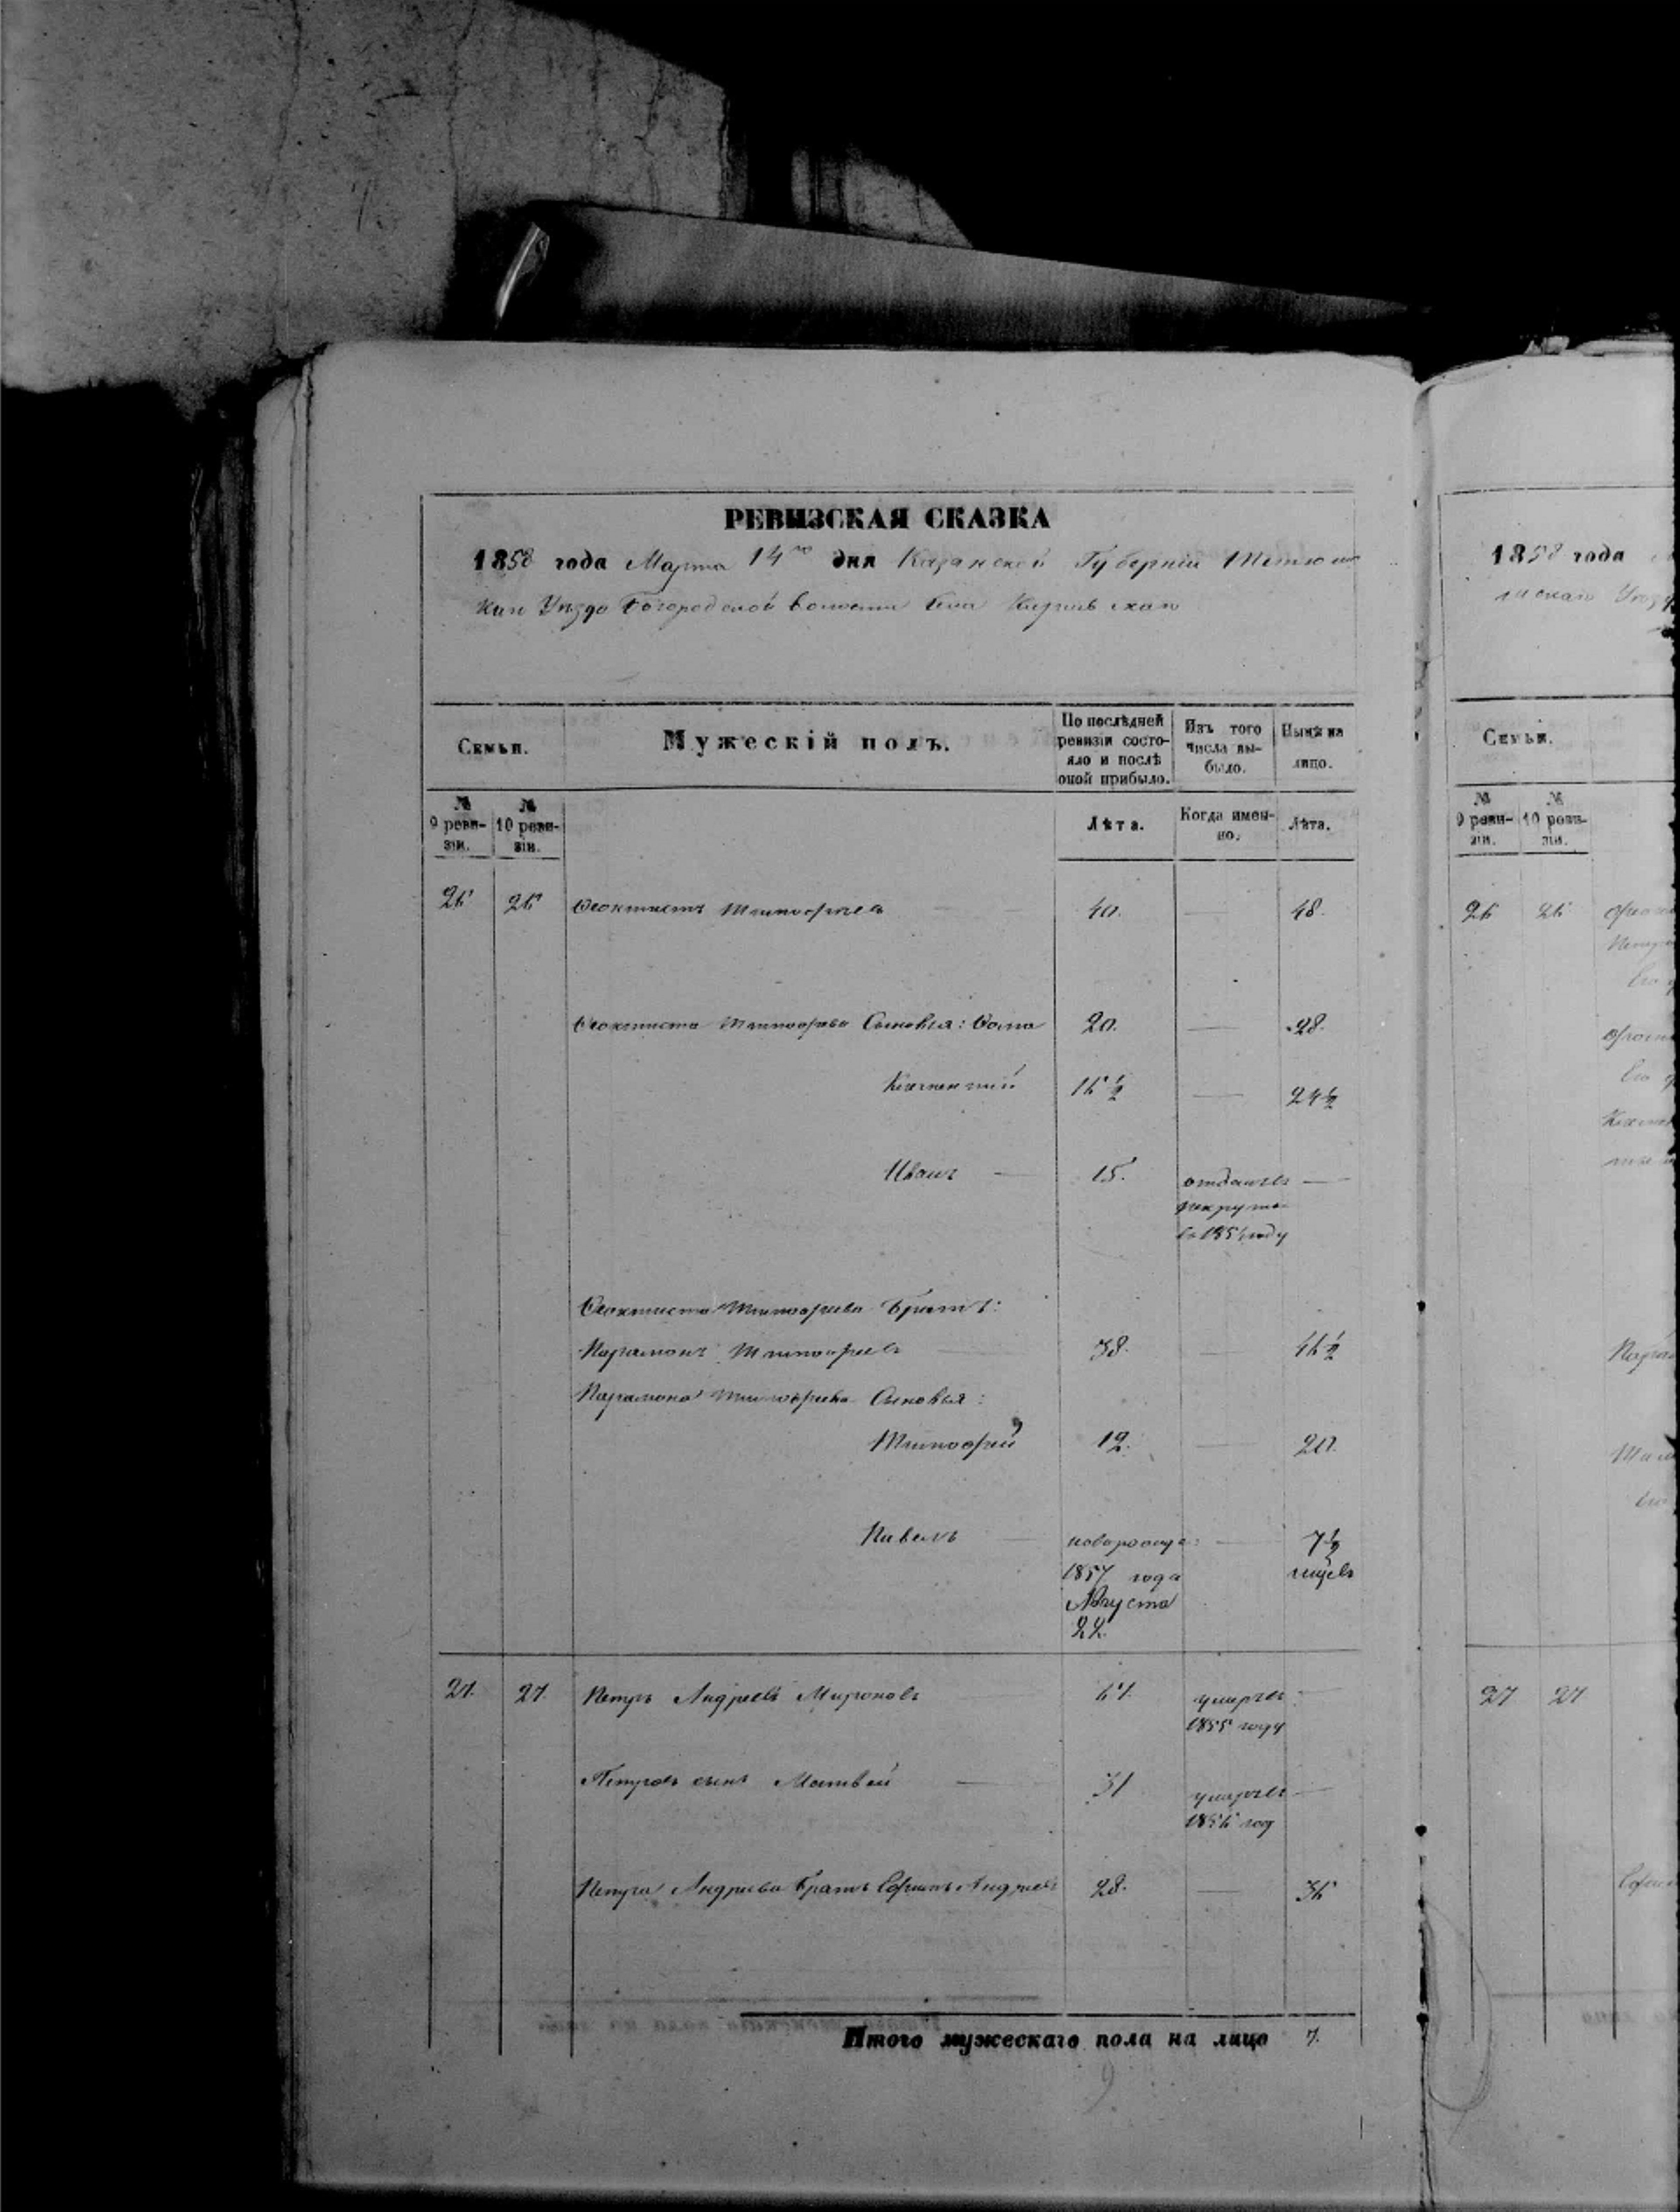 РЕВИЗСКАЯ СКАЗКА
1858 года Марта 14го дня Казанской Губерніи Тетюш
каго Уѣзда Богородской волости Села
Семьи. Мужескій полъ. По послѣдней ревизіи состояло и послѣ оной прибыло. Изъ того числа выбыло. Нынѣ на лицо.
№ 9 ревизіи. № 10 ревизіи. Лѣта. Когда именно. Лѣта.
26 26 Ѳеоктистъ Тимофѣевъ — 40. — 48.
Ѳеоктиста Тимофѣева Сыновья: Ѳома 20. — 28.
Климентий 16 ½ — 24 ½
Иванъ — 15. отданъ въ —
рекруты
въ 185 году
Ѳеоктиста Тимофѣева Братъ:
Парамонъ Тимофѣевъ — 38. — 46 ½
Парамона Тимофѣева Сыновья:
Тимофей 12. — 20.
Павелъ — новорожде: — 7 ½
1857 года
Августа
22.
27. 27. Петръ Андреевъ Мироновъ умеръ въ —
1855 году
Петровъ сынъ Матвей — 31 умеръ въ —
1856 год
Петра Андреева Братъ Ефимъ Андреевъ 28. — 36
Итого мужескаго пола на лицо 7.
1858 года
скаго Уѣзд
Семьи.
№ 9 ревизіи. № 10 ревизіи.
26 26
27 27